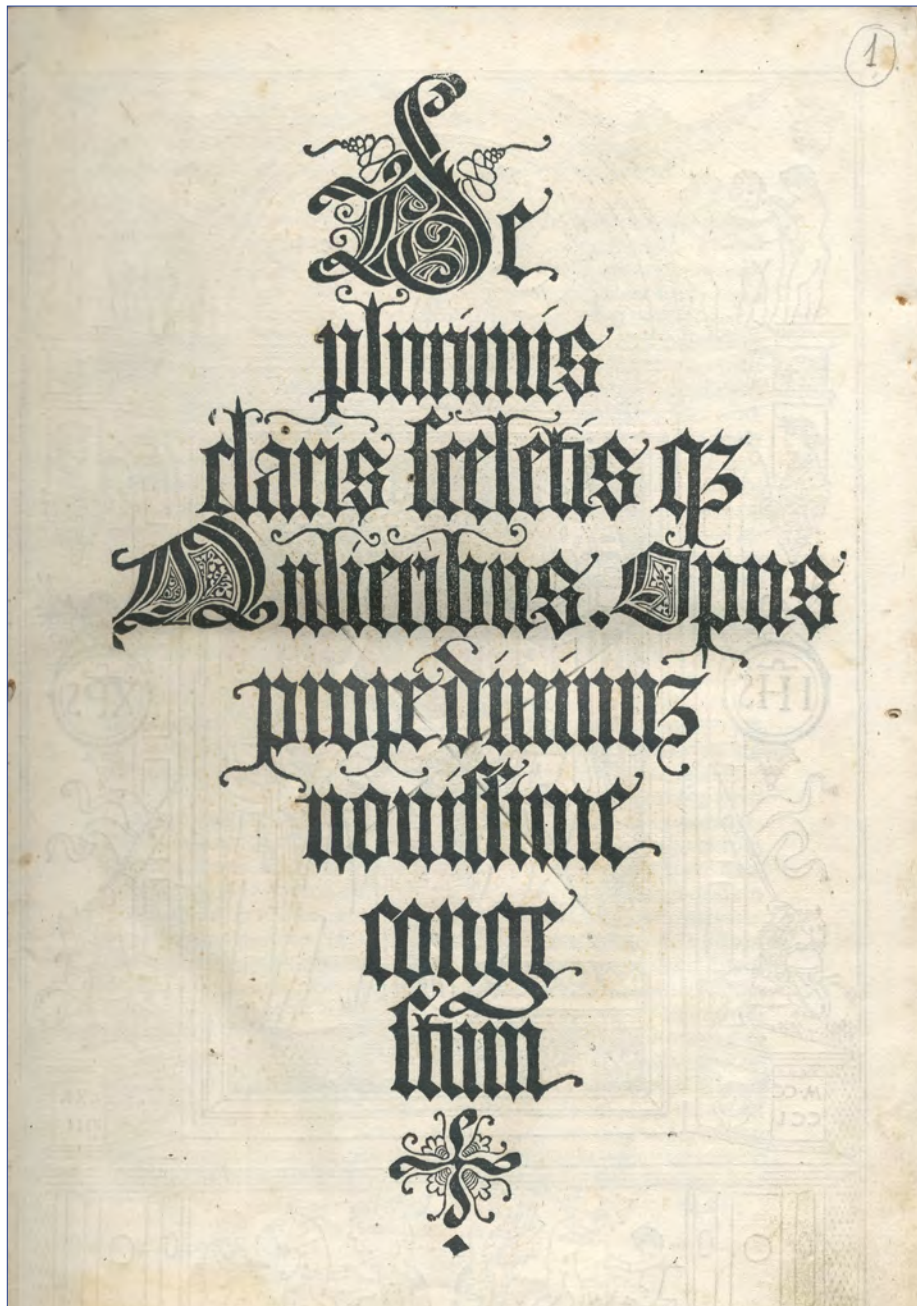 1
De
plurimis
claris sceletis qz
Mulieribus. Opus
prope diuinuz
nouissime
conge
stum